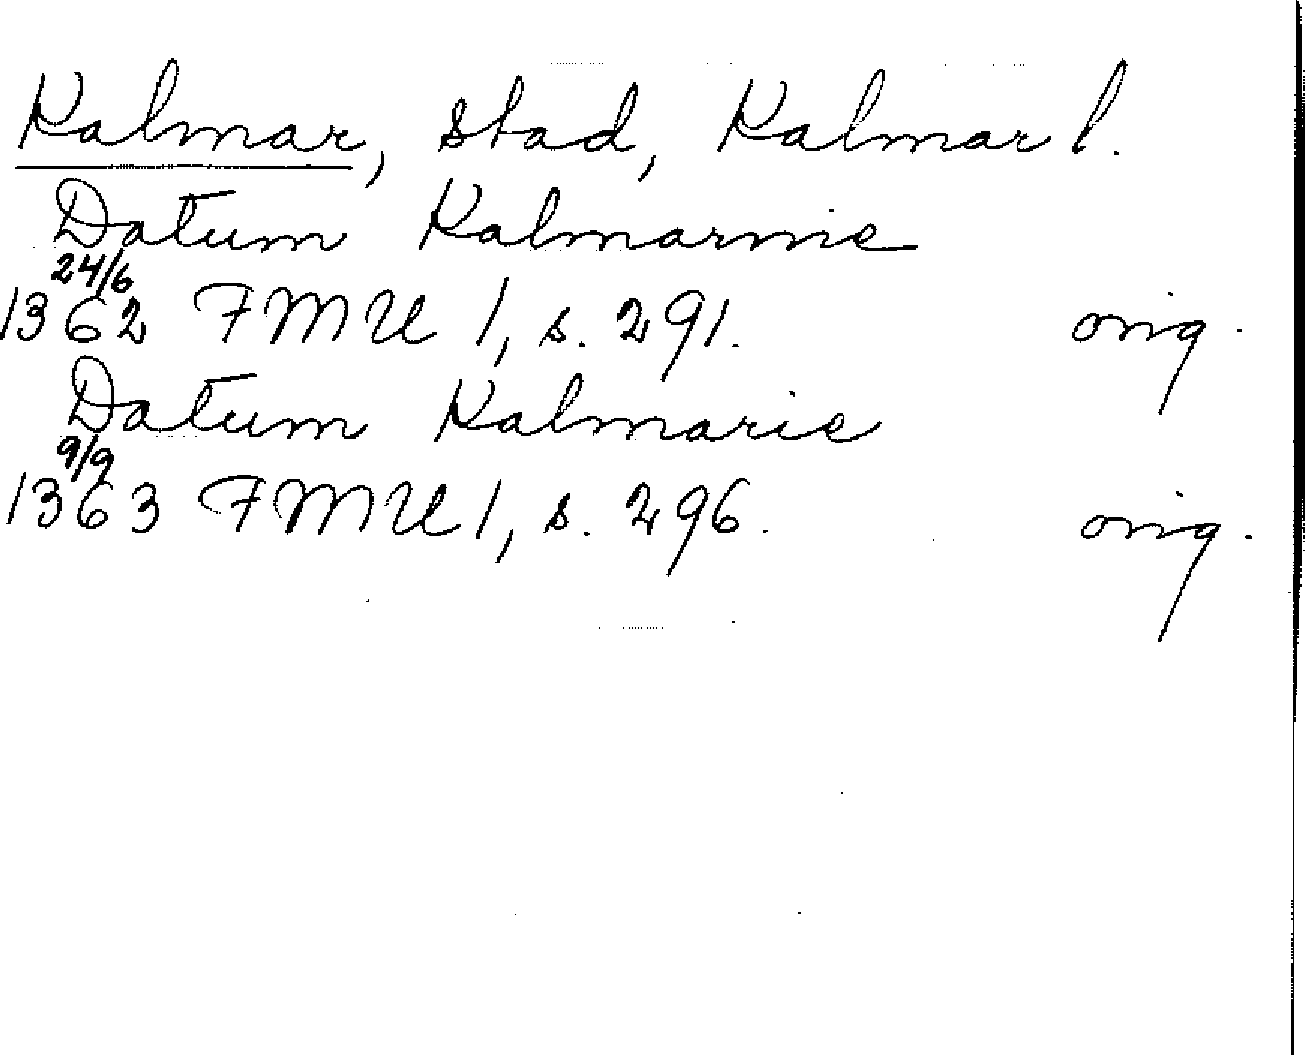 Kalmar, stad, Kalmar l.
Datum Kalmarnie
24/6
1362 FMU 1, s. 291. orig.
Datum Kalmarie
9/9
1363 FMU 1, s. 296. orig.